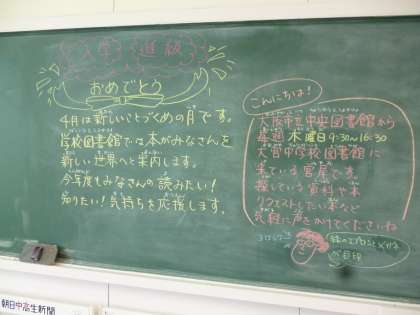 入学 進級
おめでとう
4月は新しいことづくめの月です。
学校図書館では本がみなさんを
新しい世界へと案内します。
今年度もみなさんの読みたい!
知りたい!気持ちを応援します。
こんにちは!
大阪市立中央図書館から
毎週木曜日9:30~16:30
大宮中学校図書館に
来ている宮尾です。
探している資料や本
リクエストしたい本など
気軽に声をかけてくださいね
が目印
朝日中高生新聞